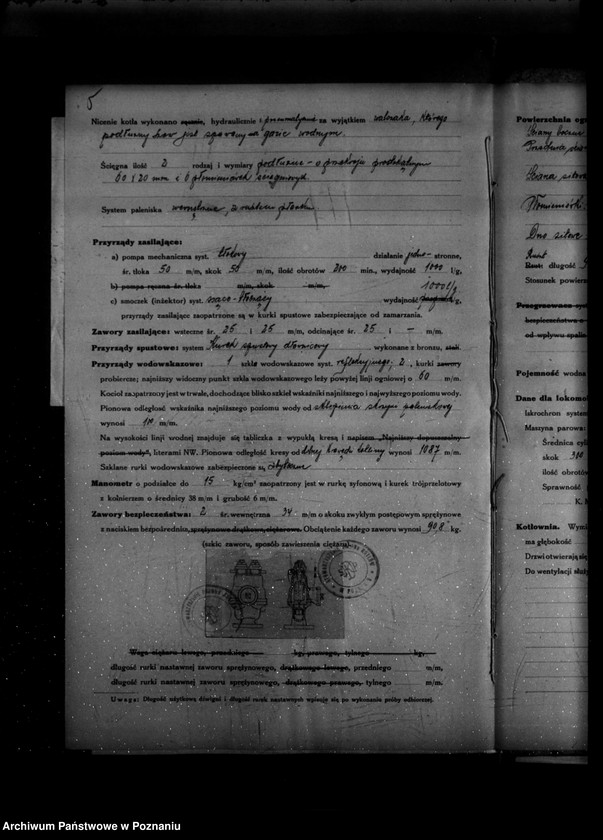 5
Nicenie kotła wykonano ręcznie, hydraulicznie i pneumatyczne za wyjątkiem walczaka, którego
podłużny szew jest spawany na gazie wodnym.
Ścięgna ilość 2 rodzaj i wymiary podłużne - o przekroju prostokątnym
60 x 20 mm i 6 płomieniówek ściągowych.
System paleniska wewnętrzne, z rusztem płaskim
Przyrządy zasilające:
a) pompa mechaniczna syst. tłokowy działanie jedno- stronne,
śr. tłoka 50 m/m, skok 50 m/m, ilość obrotów 200 min., wydajność 1000 l/g,
b) pompa ręczna śr. tłoka m/m, skok m/m,
c) smoczek (inżektor) syst. ssąco-tłoczący wydajność 1000 l/g,
przyrządy zasilające zaopatrzone są w kurki spustowe zabezpieczające od zamarzania.
Zawory zasilające: wsteczne śr. 25 i 25 m/m, odcinające śr. 25 i — m/m.
Przyrządy spustowe: system Kurek spustowy dławicowy wykonane z bronzu, stali.
Przyrządy wodowskazowe: 1 szkła wodowskazowe syst. refleksyjnego, 2, kurki zawory
probiercze; najniższy widoczny punkt szkła wodowskazowego leży powyżej linji ogniowej o 60 m/m.
Kocioł zaopatrzony jest w trwałe, dochodzące blisko szkieł wskaźniki najniższego i najwyższego poziomu wody.
Pionowa odległość wskaźnika najniższego poziomu wody od sklepienia skrzyni paleniskowej
wynosi 110 m/m.
Na wysokości linji wodnej znajduje się tabliczka z wypukłą kresą i napisem „Najniższy dopuszczalny
poziom wody", literami NW. Pionowa odległość kresy od dolnej krawędzi wynosi 1087 m/m.
Szklane rurki wodowskazowe zabezpieczone są
Manometr o podziałce do 15 kg/cm² zaopatrzony jest w rurkę syfonową i kurek trójprzelotowy
z kołnierzem o średnicy 38 m/m i grubość 6 m/m.
Zawory bezpieczeństwa: 2 śr. wewnętrzna 34 m/m o skoku zwykłym postępowym sprężynowe
z naciskiem bezpośrednim, sprężynowe drążkowe, ciężarowe. Obciążenie każdego zaworu wynosi 90,8 kg.
(szkic zaworu, sposób zawieszenia ciężaru)
Waga ciężaru lewego, przedniego kg, prawego, tylnego kg,
długość rurki nastawnej zaworu sprężynowego, drążkowego lewego, przedniego m/m,
długość rurki nastawnej zaworu sprężynowego, drążkowego prawego, tylnego m/m.
Uwaga: Długość użytkową dźwigni i długość rurek nastawnych wpisuje się po wykonaniu próby odbiorczej.
Powierzchnia
Ściany boczne
Ściana sitowa
Płomieniówki
Dno sitowe
Ruszt: długość
Stosunek powierz
Przegrzewacz
bezpieczeństwa
od wpływu spalin
Pojemność wodna
Dane dla lokomo
Iskrochron system
Maszyna parowa:
Średnica cyl
skok 310
ilość obrotów
Sprawność
K. M
Kotłownia. Wymi
ma głębokość
Drzwi otwierają się
Do wentylacji służy
Archiwum Państwowe w Poznaniu